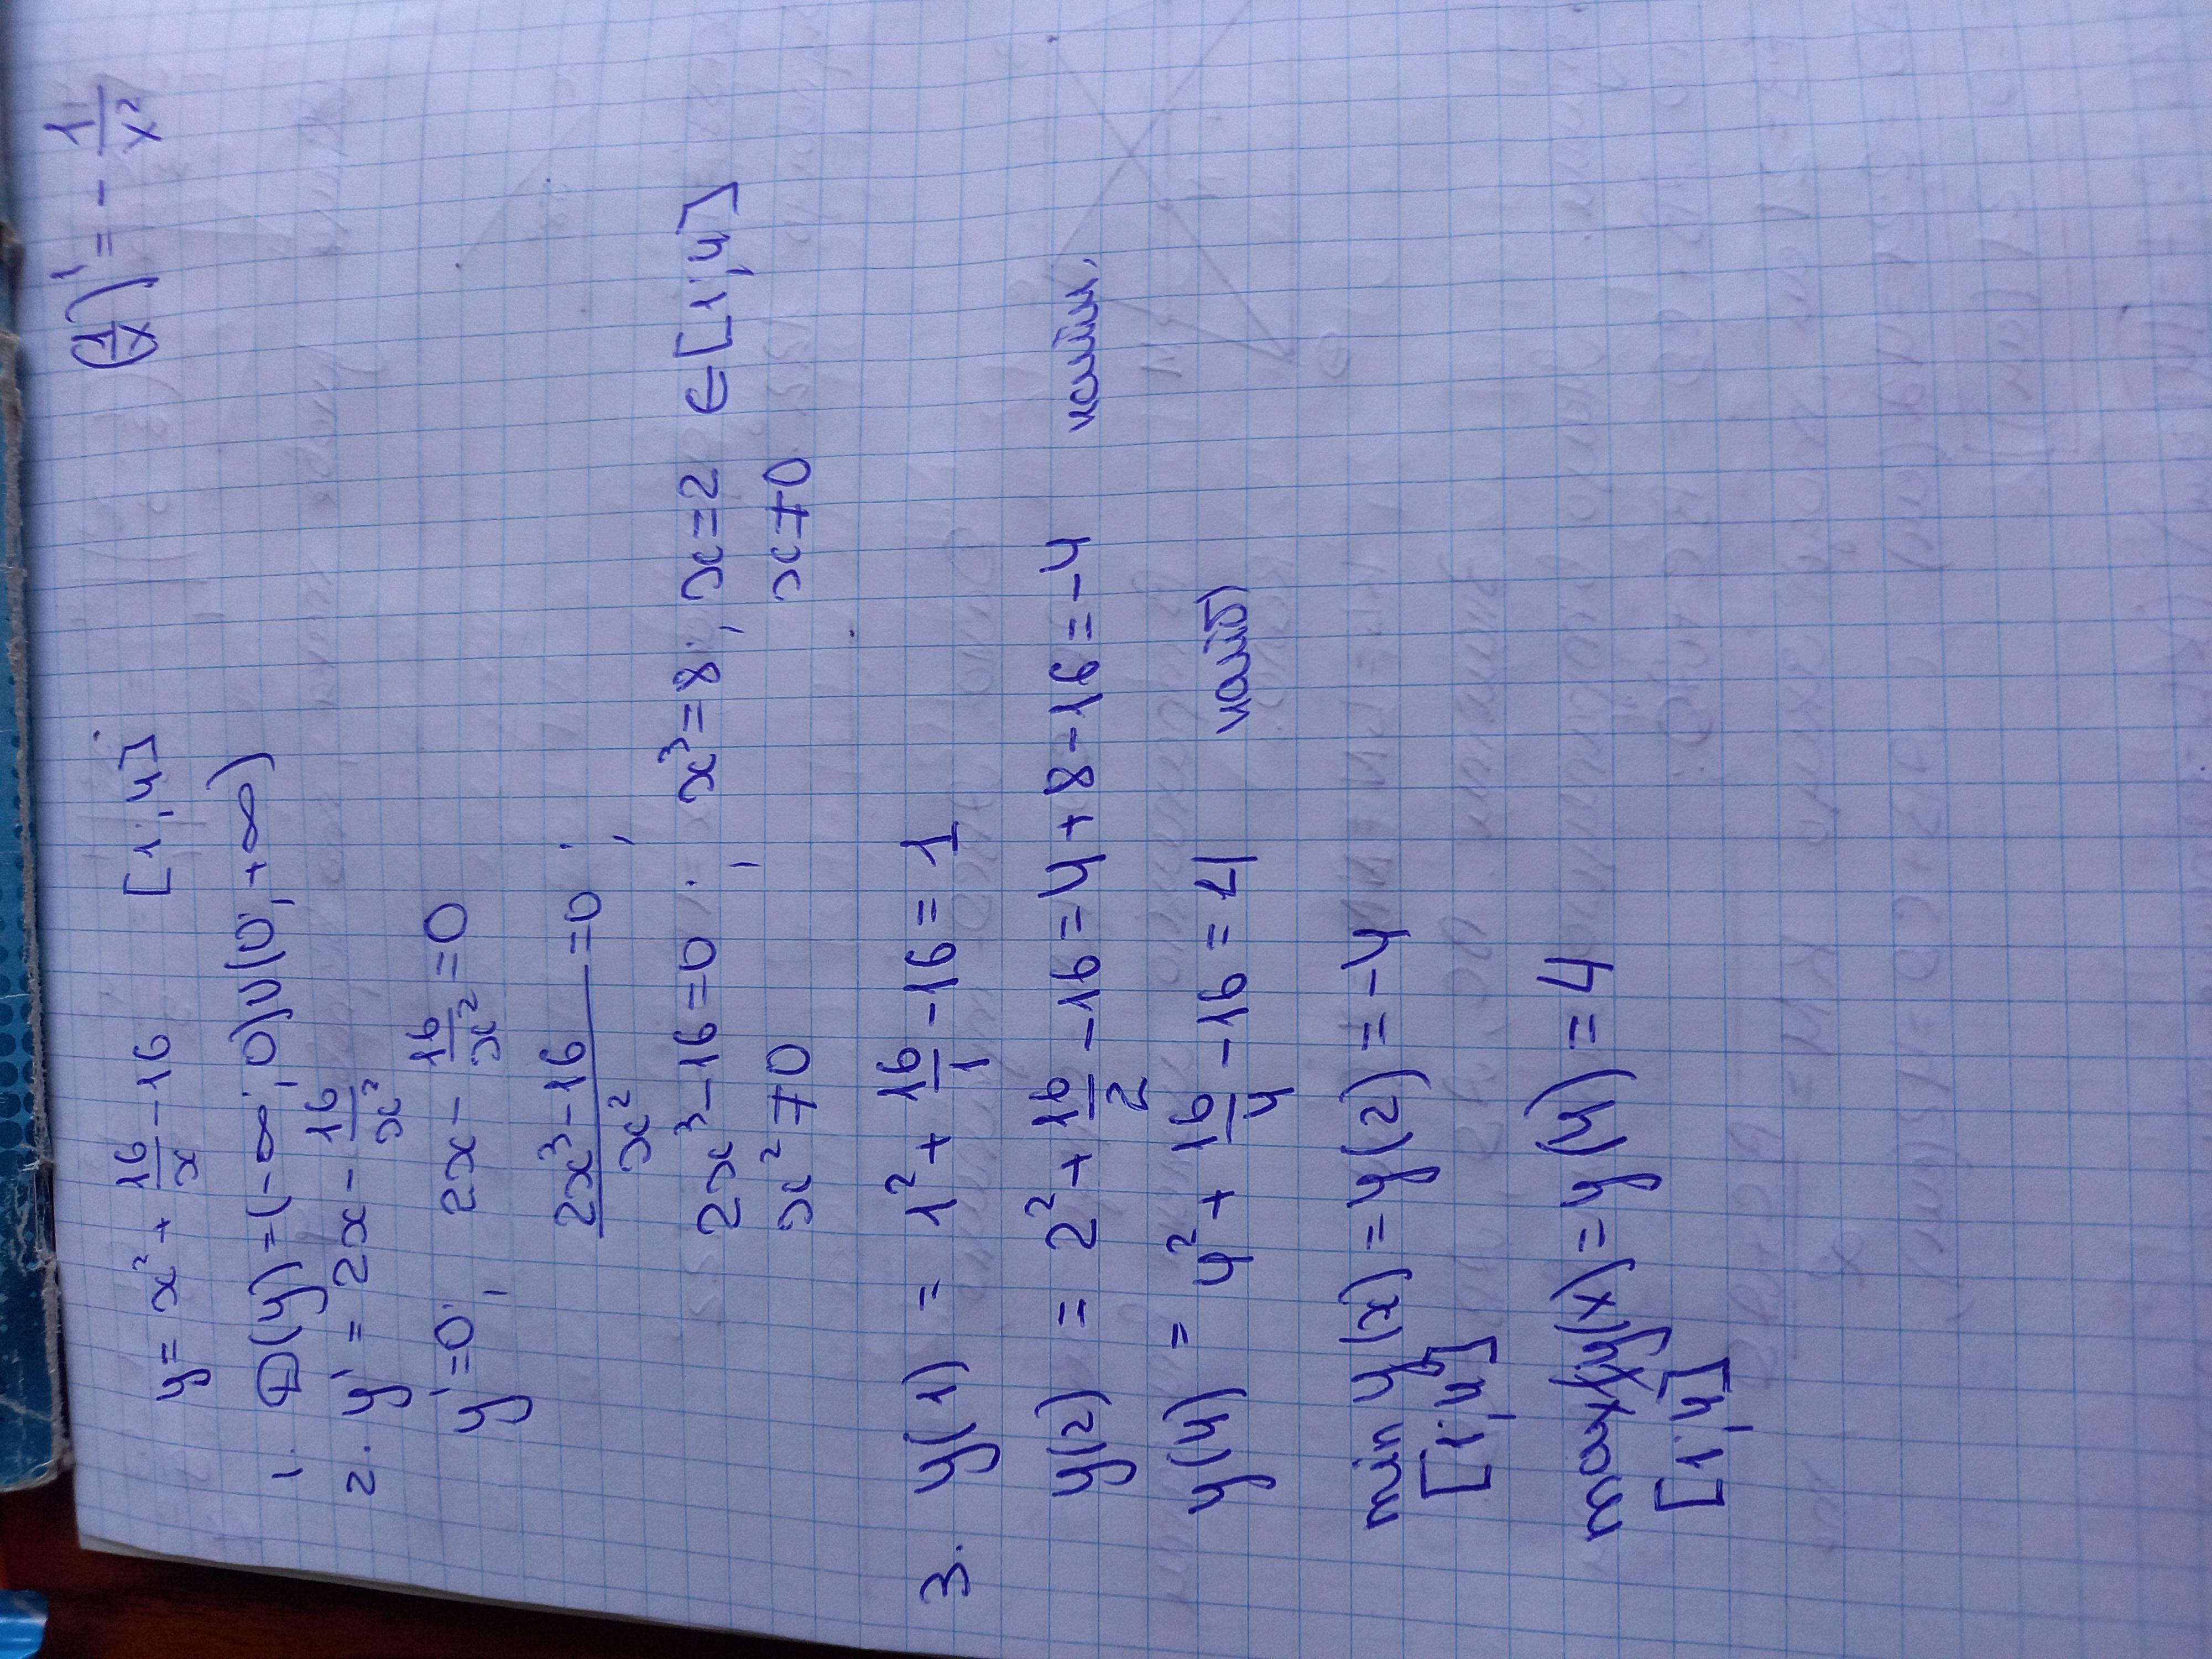 y = x² + 16/x - 16 [1; 4] (1/x)' = - 1/x²
1. D(y) = (-∞; 0)∪(0; +∞)
2. y' = 2x - 16/x²
y' = 0; 2x - 16/x² = 0
(2x³ - 16)/x² = 0;
2x³ - 16 = 0; x³ = 8; x = 2 ∈ [1; 4]
x² ≠ 0 x ≠ 0
3. y(1) = 1² + 16/1 - 16 = 1
y(2) = 2² + 16/2 - 16 = 4 + 8 - 16 = -4 наим.
y(4) = 4² + 16/4 - 16 = 4 наиб
min y(x) = y(2) = -4
[1; 4]
max y(x) = y(4) = 4
[1; 4]